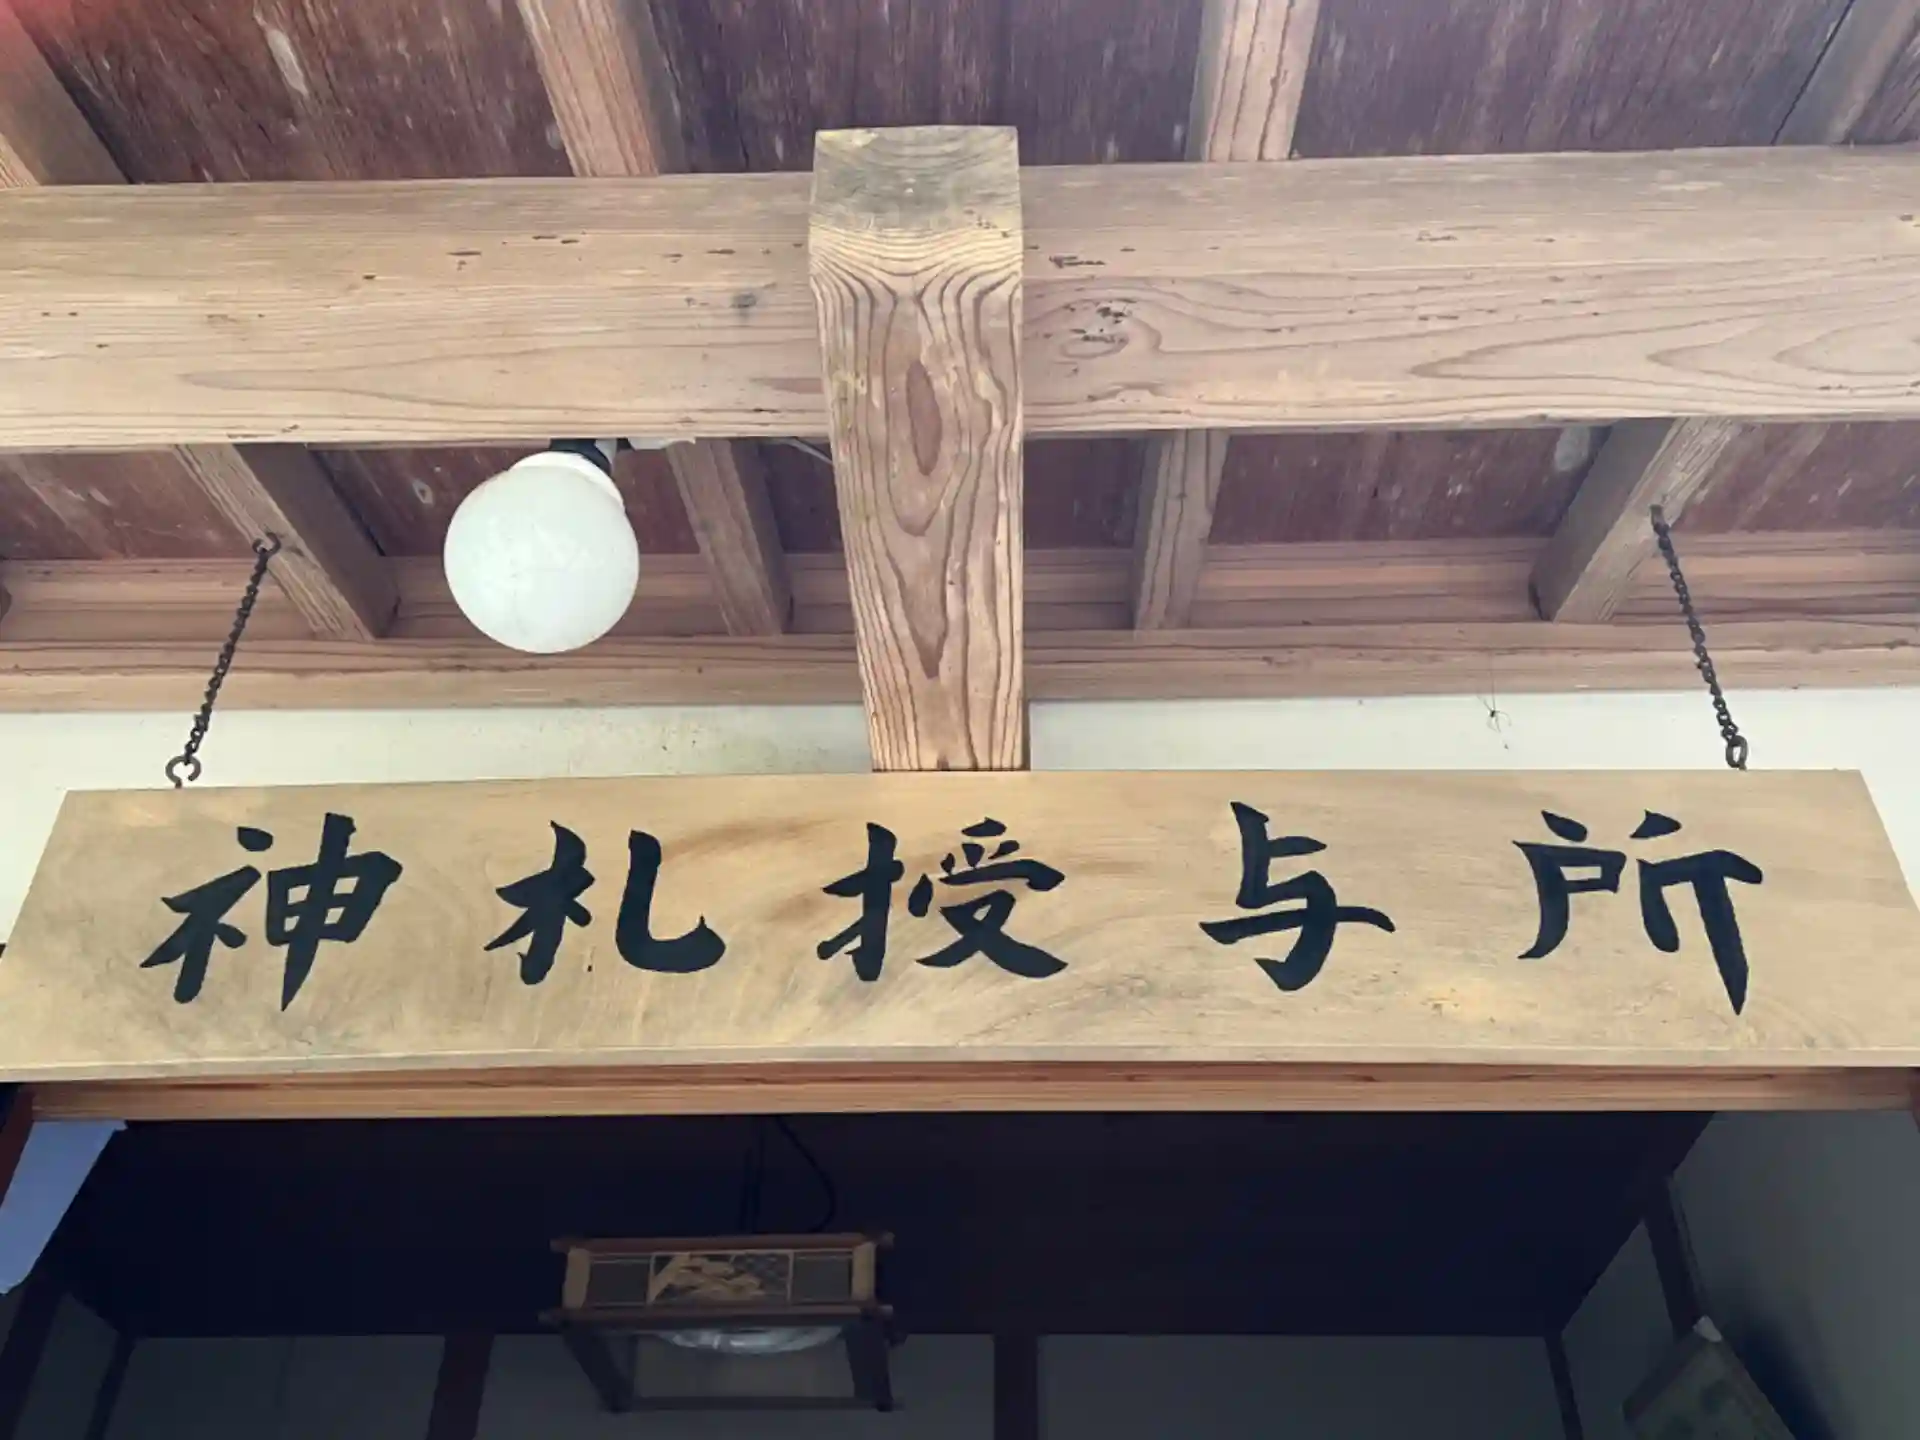 神札授与所